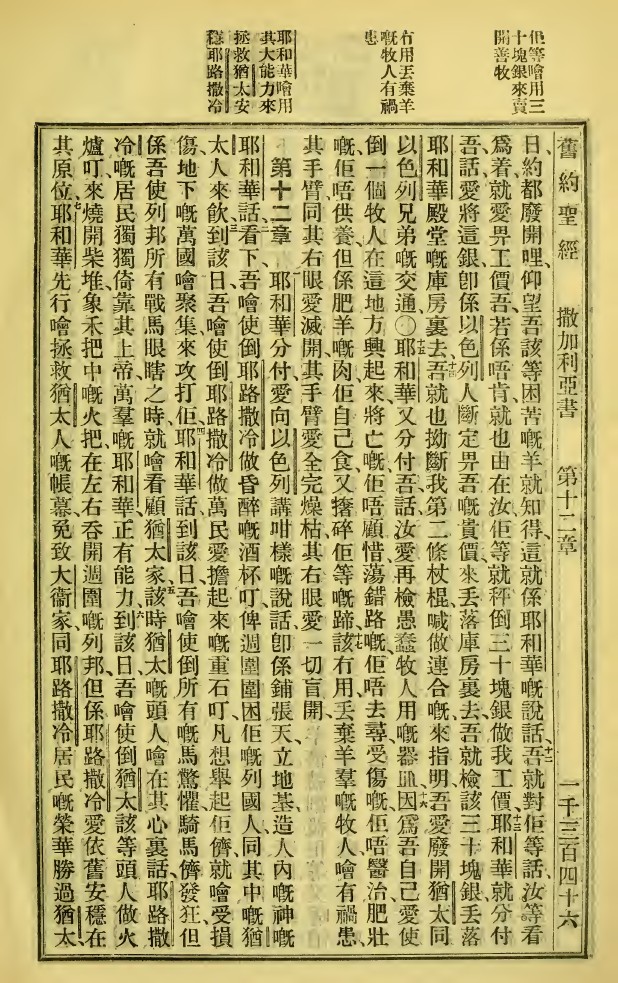 佢等噲用三
十塊銀來賣
開善牧
冇用丟棄羊
嘅牧人有禍
患
耶和華噲用
其大能力來
拯救猶太安
穩耶路撒冷
舊約聖經 撒加利亞書 第十二章 一千三百四十六
日、約都廢開哩、仰望吾該等困苦嘅羊就知得、這就係耶和華嘅說話、十二吾就對佢等話、汝等看
爲着、就愛畀工價吾、若係唔肯、就也由在汝、佢等就秤倒三十塊銀做我工價、十三耶和華就分付
吾話、愛將這銀、卽係以色列人斷定畀吾嘅貴價、來丟落庫房裏去、吾就檢該三十塊銀、丟落
耶和華殿堂嘅庫房裏去、十四吾就也拗斷我第二條杖棍、喊做連合嘅、來指明吾愛廢開猶太同
以色列兄弟嘅交通、〇十五耶和華又分付吾話、汝愛再檢愚蠢牧人用嘅器皿、十六因爲吾自己愛使
倒一個牧人在這地方興起來、將亡嘅佢唔顧惜、蕩錯路嘅佢唔去尋、受傷嘅佢唔醫治、肥壯
嘅佢唔供養、但係肥羊嘅肉佢自己食、又撦碎佢等嘅蹄、十七該冇用丟棄羊羣嘅牧人噲有禍患、
其手臂同其右眼愛滅開、其手臂愛全完燥枯、其右眼愛一切盲開、
第十二章 一耶和華分付愛向以色列講咁樣嘅說話、卽係鋪張天立地基、造人內嘅神嘅
耶和華話、二看下吾噲使倒耶路撒冷做昏醉嘅酒杯、叮俾週圍圍困佢嘅列國人、同其中嘅猶
太人來飲、三到該日吾噲使倒耶路撒冷做萬民愛擔起來嘅重石、叮凡想舉起佢儕就噲受損
傷、地下嘅萬國噲聚集來攻打佢、四耶和華話、到該日吾噲使倒所有嘅馬驚懼、騎馬儕發狂、但
係吾使列邦所有戰馬眼瞎之時、就噲看顧猶太家、五該時猶太嘅頭人噲在其心裏話、耶路撒
冷嘅居民獨獨倚靠其上帝萬羣嘅耶和華、正有能力、六到該日吾噲使倒猶太該等頭人做火
爐、叮來燒開柴堆、象禾把中嘅火把、在左右吞開週圍嘅列邦、但係耶路撒冷愛依舊安穩在
其原位、七耶和華先行噲拯救猶太人嘅帳幕、免致大衞家、同耶路撒冷居民嘅榮華勝過猶太、